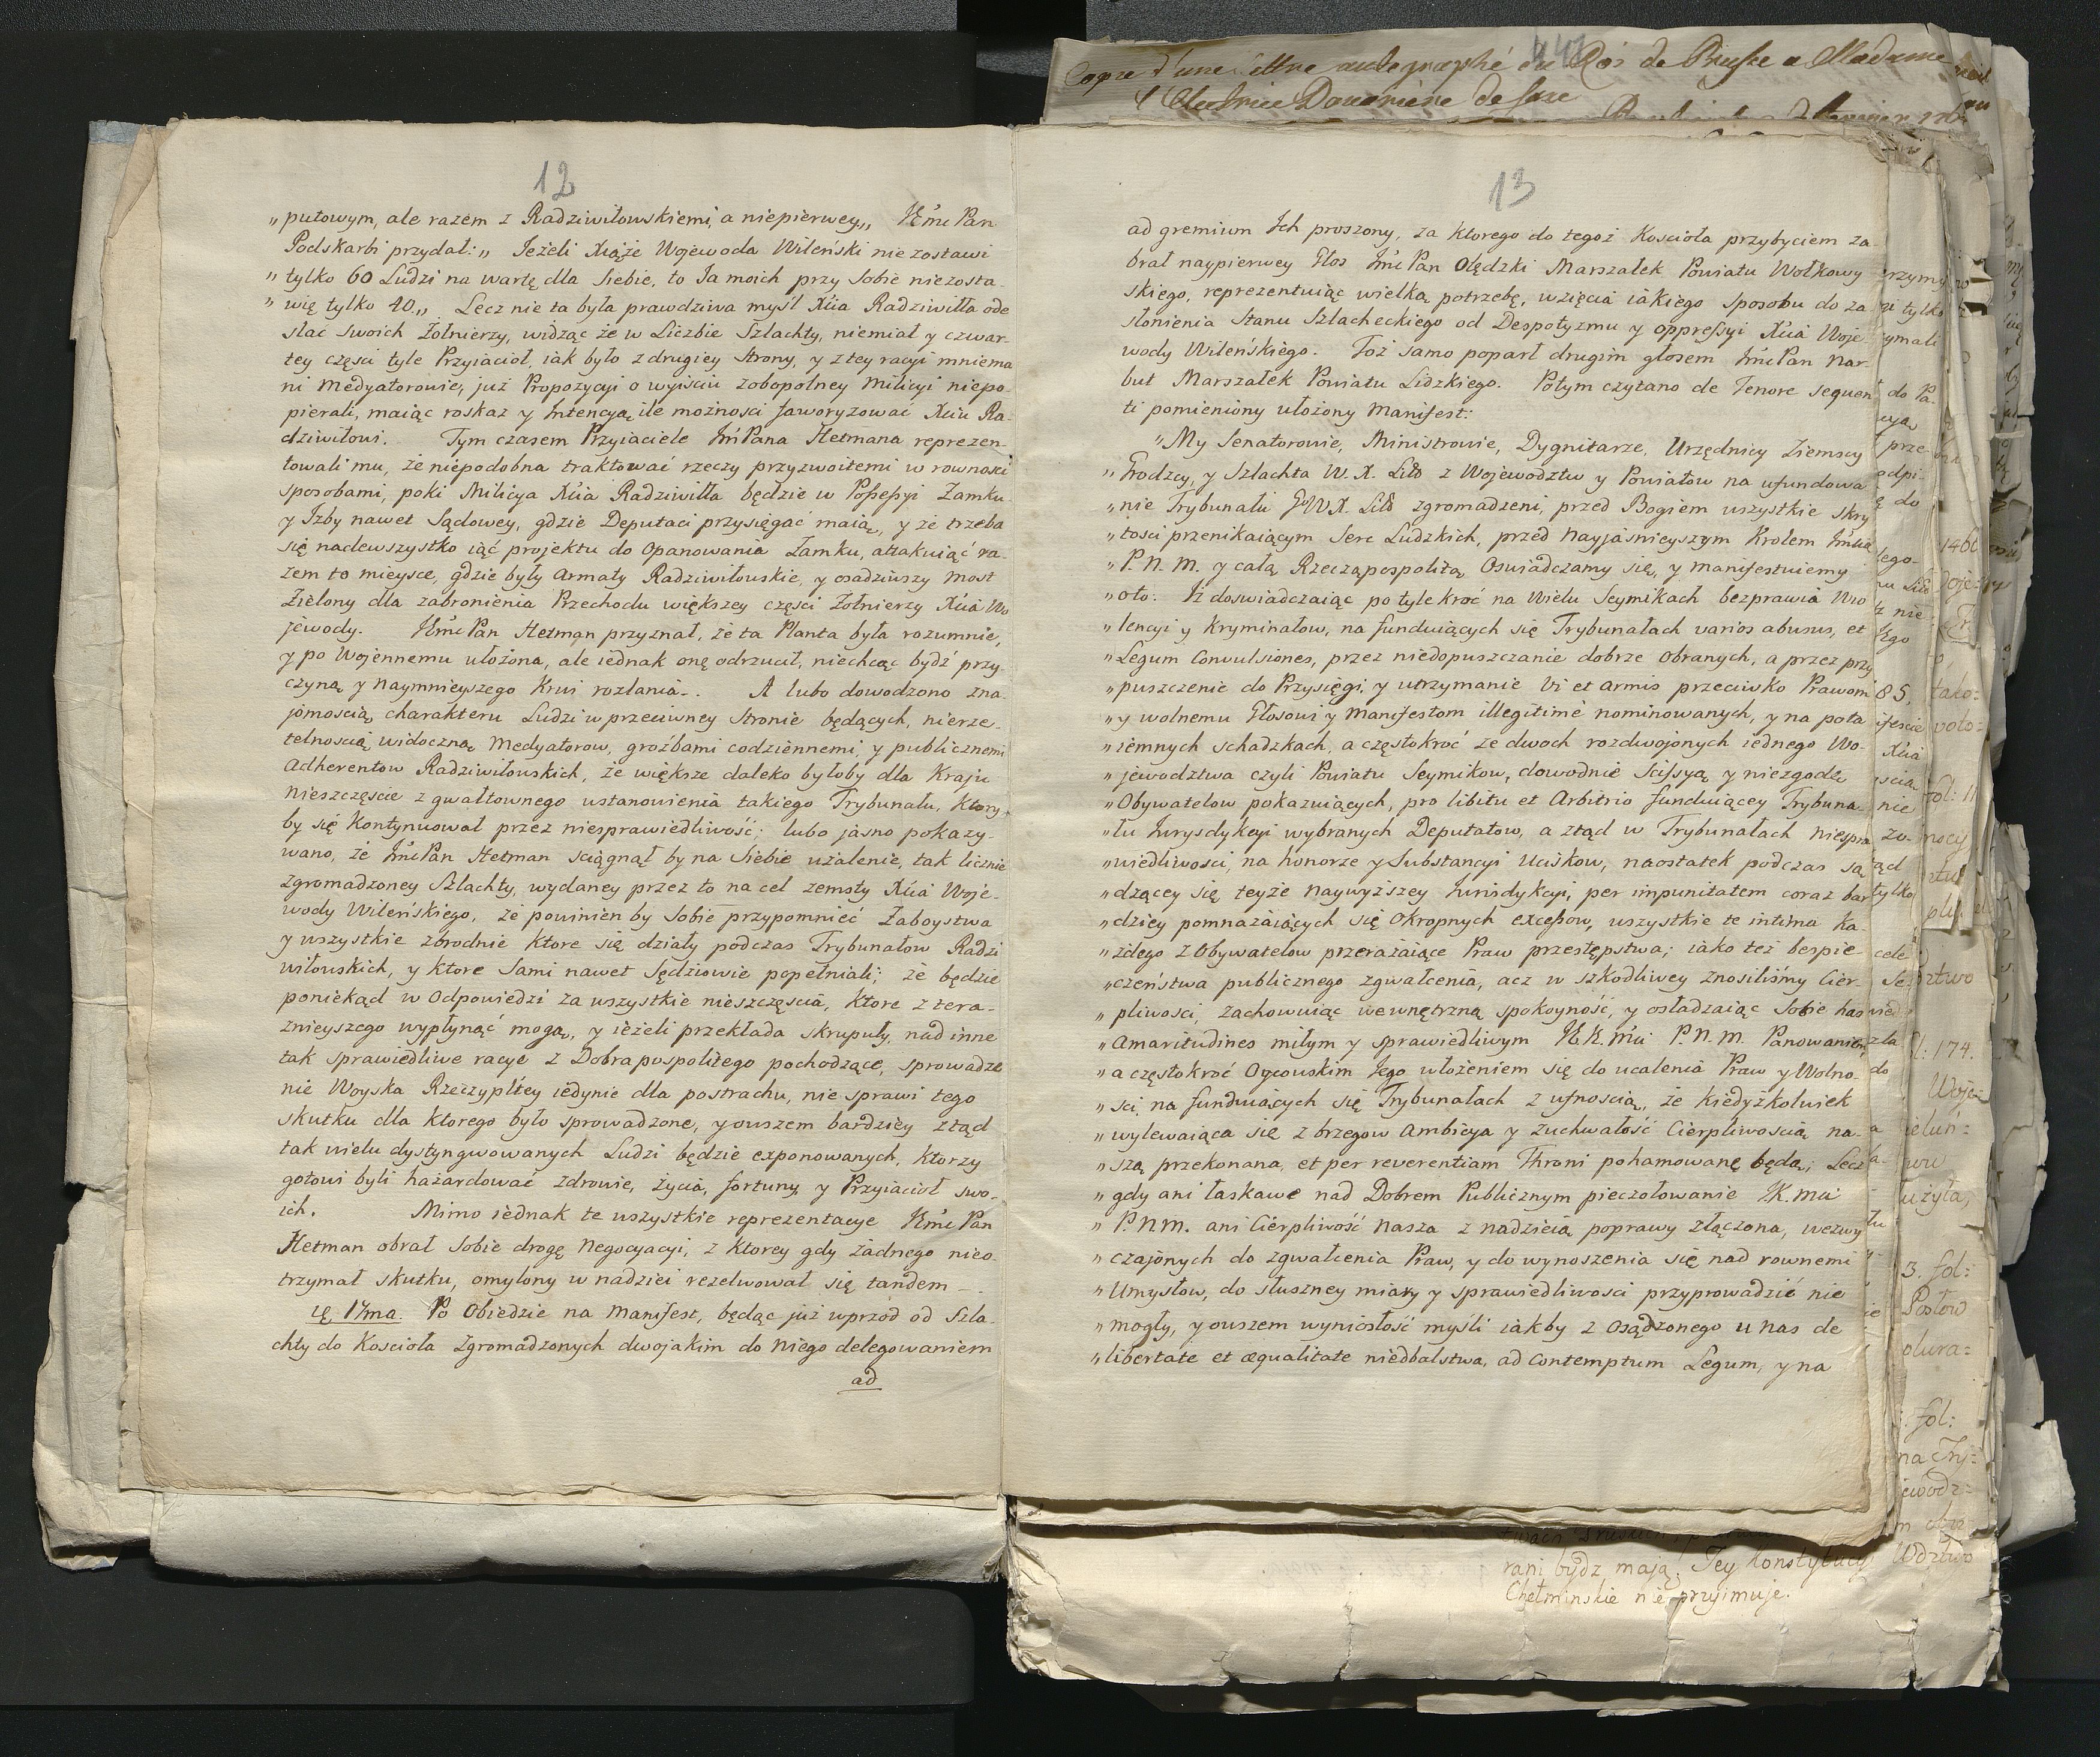 12
„putowym, ale razem z Radziwiłowskiemi, a niepierwey„ JEmć Pan
Podskarbi przydał: „Jeżeli Xiąże Wojewoda Wileński nie zostawi
„tylko 60 Ludzi na wartę dla Siebie, to Ja moich przy Sobie niezosta-
„wię tylko 40„ Lecz nie ta była prawdziwa myśl Xiia Radziwiłła ode
słać swoich Żołnierzy, widząc że w Liczbie Szlachty, niemiał y czwar-
tey części tyle Przyiacioł, iak było z drugiey strony, y z tey racyi mniema
ni Medyatorowie, już Propozycyi o wyiściu zobopolney Milicyi niepo-
pierali, maiąc roskaz y Intencyą ile możnosci faworyzować Xiiu Ra-
dziwiłowi. Tym czasem Przyiaciele Jm̃Pana Hetmana reprezen-
towali mu, że niepodobna traktować rzeczy przyzwoitemi w rownosci
sposobami, poki Milicya Xiia Radziwiłła będzie w Possessyi Zamku
y Izby nawet Sądowey, gdzie Deputaci przysięgać maią, y że trzeba
się nadewszystko iąć projektu do Opanowania Zamku, attakuiąć ra-
zem to mieysce, gdzie były Armaty Radziwiłowskie, y osadziwszy Most
Zielony dla zabronienia Przechodu większey części Żołnierzy Xiia Wo
jewody. JEmć Pan Hetman przyznał, że ta Planta była rozumnie,
y po Wojennemu ułożona, ale iednak onę odrzucił, niechcąc bydź przy-
czyną y naymnieyszego Krwi rozlania. A lubo dowodzono zna-
jomoscią charakteru Ludzi w przeciwney stronie będących, nierze-
telnoscią widoczną Medyatorow, groźbami codziennemi, y publicznemi
Adherentow Radziwiłowskich, że większe daleko byłoby dla Kraju
nieszczęscie z gwałtownego ustanowienia takiego Trybunału, ktory
by się Kontynuował przez niesprawiedliwość; lubo jasno pokazy-
wano, że Jm̃ć Pan Hetman sciągnął by na Siebie użalenie, tak licznie
zgromadzoney Szlachty, wydaney przez to na cel zemsty Xiia Woje-
wody Wileńskiego, że powinien by Sobie przypomnieć Zaboystwa
y wszystkie zbrodnie ktore się działy podczas Trybunałow Radzi
wiłowskich, y ktore Sami nawet Sędziowie popełniali; że będzie
poniekąd w Odpowiedzi za wszystkie nieszczęscia, Ktore z tera-
znieyszego wypłynąć mogą, y ieżeli przekłada skrupuły, nad inne
tak sprawiedliwe racye z Dobra pospolitego pochodzące, sprowadze
nie Woyska Rzeczypltey iedynie dla postrachu, nie sprawi tego
skutku dla ktorego było sprowadzone, y owszem bardziey ztąd
tak wielu dystyngwowanych Ludzi będzie exponowanych, ktorzy
gotowi byli hażardować zdrowie, życia, fortuny y Przyiacioł swo-
ich. Mimo iednak te wszystkie reprezentacye JEmć Pan
Hetman obrał Sobie drogę Negocyacyi, z ktorey gdy żadnego nieo-
trzymał skutku, omylony w nadziei rezelwował się tandem
17ma. Po Obiedzie na Manifest, będąc już wprzod od Szla-
chty do Koscioła Zgromadzonych dwojakim do Niego delegowaniem
ad
13
ad gremium Ich proszony, za ktorego do tegoż Koscioła przybyciem za-
brał naypierwey Głos Jm̃ć Pan Olędzki Marszałek Powiatu Wołkowy
skiego, reprezentuiąc wielką potrzebę, wzięcia iakiego sposobu do za
słonienia Stanu Szlacheckiego od Despotyzmu y oppressyi Xiia Woje
wody Wileńskiego. Toż samo poparł drugim głosem Jm̃ć Pan Nar-
but Marszałek Powiatu Lidzkiego. Potym czytano de Tenore sequen
ti pomieniony ułożony Manifest:
„My Senatorowie, Ministrowie, Dygnitarze, Urzędnicy Ziemscy
„Grodzcy, y Szlachta W. X. Litt z Wojewodztw y Powiatow na ufundowa
„nie Trybunału GłW.X. Litt zgromadzeni, przed Bogiem wszystkie skry
„tosci przenikaiącym Serc Ludzkich, przed Nayjasnieyszym Krolem
„P. N. M. y całą Rzecząpospolitą Oswiadczamy się, y manifestuiemy
„oto. Iż doswiadczaiąc po tyle kroć na Wielu Seymikach bezprawia Wio
„lencyi y Kryminałow, na funduiących się Trybunałach varios abusus, et
„Legum Convulsiones, przez niedopuszczanie dobrze Obranych, a przez przy
„puszczenie do Przysięgi, y utrzymanie Vi et Armis przeciwko Prawom
„y wolnemu Głosowi y Manifestom illegitimè nominowanych, y na pota
„iemnych schadzkach, a częstokroć ze dwoch rozdwojonych iednego Wo-
„jewodztwa czyli Powiatu Seymikow, dowodnie Scissyą y niezgodę
„Obywatelow pokazuiących, pro libitu et Arbitrio funduiącey Trybuna-
„łu Jurysdykcyi wybranych Deputatow, a ztąd w Trybunałach niespra
„wiedliwosci, na honorze y Substancyi Uciskow, naostatek podczas są
„dzącey się teyże Naywyższey Jurisdykcyi, per impunitatem coraz bar
„dziey pomnażaiących się Okropnych excessow, wszystkie te intima Ka-
„żdego z Obywatelow przerażaiące Praw przestępstwa; iako też bespie
„czeństwa publicznego zgwałcenia, acz w szkodliwey znosiliśmy Cier-
„pliwosci, zachowuiąc wewnętrzną spokoyność, y osładzaiąc Sobie has
„Amaritudines miłym y sprawiedliwym JK.Mći P.N.M. Panowaniem,
„a częstokroć Oycowskim Jego włożeniem się do ucalenia Praw y Wolno-
„sci, na funduiących się Trybunałach z ufnoscią, że Kiedyżkolwiek
„wylewaiąca się z brzegow Ambicya y Zuchwałość Cierpliwoscią na-
„szą przekonana, et per reverentiam Throni pohamowane będą; Lecz
„gdy ani łaskawe nad Dobrem Publicznym pieczołowanie JK.Mći
„P.N.M. ani Cierpliwość Nasza z nadzieią poprawy złączona, wezwy
„czajonych do zgwałcenia Praw, y do wynoszenia się nad rownemi
„Umysłow, do słuszney miary y sprawiedliwosci przyprowadzić nie
„mogły, y owszem wyniosłość myśli iakby z Osądzonego u Nas de
„libertate et æqualitate niedbalstwa, ad Contemptum Legum, y na
rani bydz mają. Tey Konstytucyi
Chełminskie nie przyimuje.